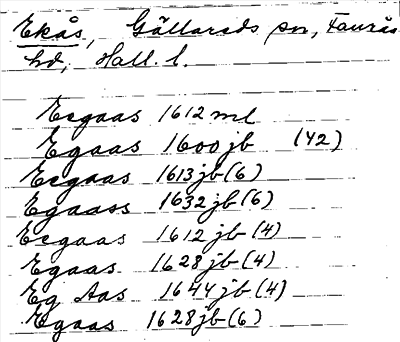 Ekås, Gällareds sn, Faurås
hd, Hall. l.
Eegaas 1612 ml
Egaas 1600 jb (42)
Eegaas 1613 jb (6)
Egaass 1632 jb (6)
Eegaas 1612 jb (4)
Egaas 1628 jb (4)
Eg Aas 1644 jb (4)
Egaas 1628 jb (6)